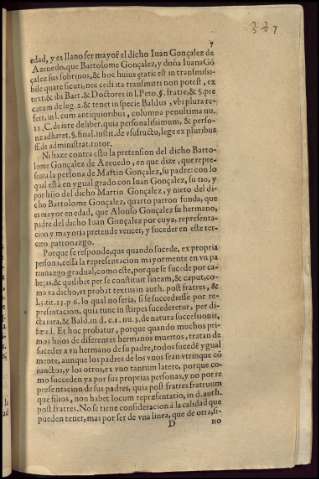 337
7
edad, y es llano ser mayor el dicho Iuan Gonçalez de
Azeuedo, que Bartolome Gonçalez, y doña Iuana Gõ
çalez sus sobrinos, & hoc huius gratiæ est in transmissi-
text. & ibi Bart. & Doctores in l. Peto, §. fratre, &
catam de leg. 2. & tenet in specie Baldus
in l. cum antiquioribus, columna penultima nu.
11. C. de iure deliber. quia personalissimum, & perso-
næ adhæret. §. final. instit. de vsufructo, lege ex pluribus
ff. de administrat. tutor.
Ni haze contra esto la pretension del dicho Barto-
lome Gonçalez de Azeuedo, en que dize, que repre-
senta la persona de Martin Gonçalez, su padre: con lo
qual està en ygual grado con Iuan Gonçalez, su tio, y
por hijo del dicho Martin Gonçalez, y nieto del di-
cho Bartolome Gonçalez, quarto patron funda, que
es mayor en edad, que Alonso Gonçalez su hermano,
padre del dicho Iuan Gonçalez por cuya, representa-
cion y mayoria pretende vencer, y suceder en este ter-
cero patronazgo.
Porque se responde, que quando sucede, ex propria
persona, cessa la representacion mayormente en vn pa
tronazgo gradual, como este, por que se sucede por ca-
beças, & quilibet per se constituit lineam, & caput, co-
mo va dicho, et probat textus in auth. post fratres, &
l. 5. tit. 13. p. 6. lo qual no seria, si se sucediesse por re-
presentacion, quia tunc in stirpes succederetur, per di-
cta iura, & Bald. in d. c. 1. nu. 3. de natura successionis,
feu. l. Et hoc probatur, porque quando muchos pri-
mos hijos de diferentes hermanos muertos, tratan de
suceder a vn hermano de su padre, todos sucedẽ ygual
mente, aunque los padres de los vnos sean vtrinque cõ
iunctos, y los otros, ex vno tantum latere, porque co-
mo suceden ya por sus proprias personas, y no por re
presentacion de sus padres, quia post fratres fratrum
que filios, non habet locum representatio, in d. auth.
post fratres. No se tiene consideracion à la calidad que
pueden tener, mas por ser de vna linea, que de otra, si-
D
no